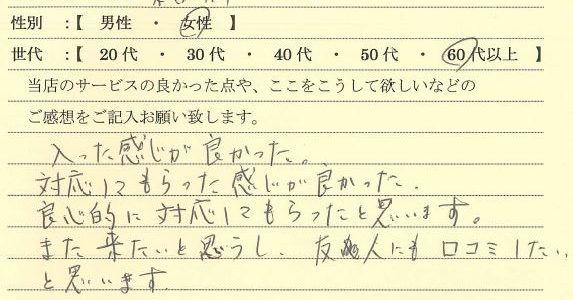 性別 :【 男性 ・ 女性 】
世代 :【 20代 ・ 30代 ・ 40代 ・ 50代 ・ 60代以上 】
当店のサービスの良かった点や、ここをこうして欲しいなどの
ご感想をご記入お願い致します。
入った感じが良かった。
対応してもらった感じが良かった.
良心的に対応してもらったと思います。
また来たいと思うし、友人にも口コミしたい
と思います.